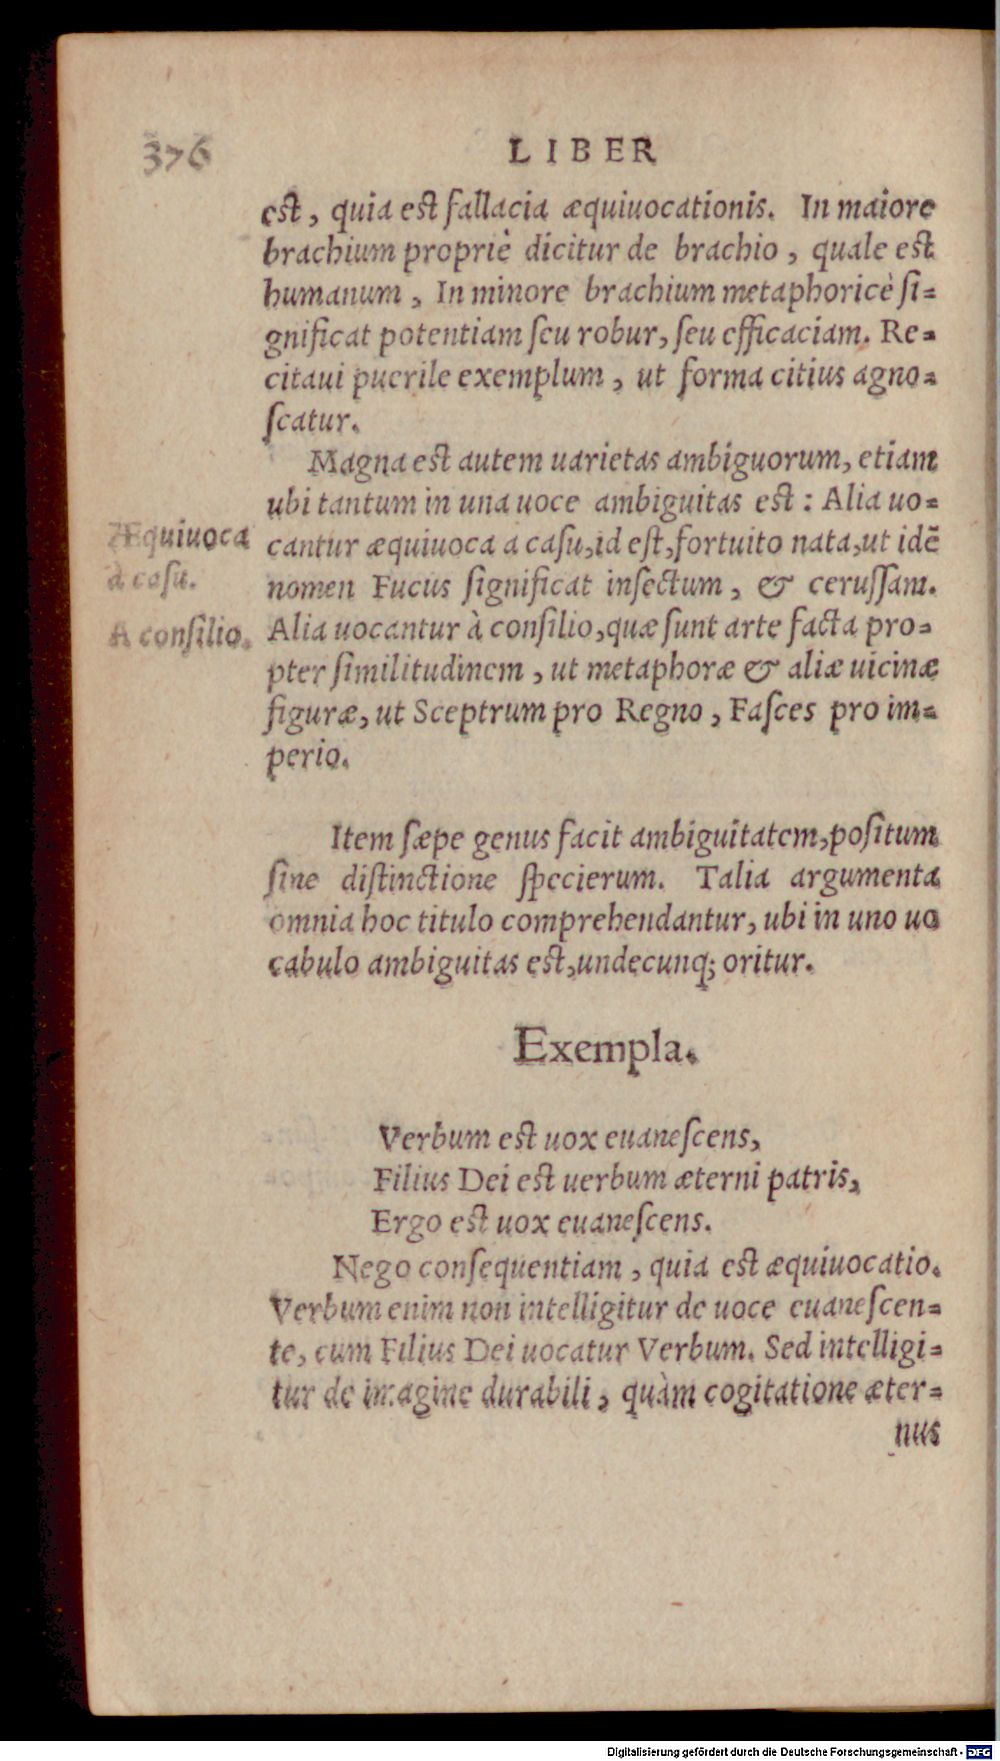 376
LIBER
est, quia est fallacia æquiuocationis. In maiore
brachium propriè dicitur de brachio, quale est
humanum, In minore brachium metaphoricè ſi=
gnificat potentiam ſeu robur, ſeu efficaciam. Re=
citaui puerile exemplum, ut forma citius agno=
ſcatur.
Magna est autem uarietas ambiguorum, etiam
ubi tantum in una uoce ambiguitas est: Alia uo=
Æquiuoca
à caſu.
cantur æquiuoca a caſu, id eſt, fortuito nata, ut idē
nomen Fucus ſignificat inſectum, & ceruſſam.
A conſilio.
Alia uocantur à conſilio, quæ ſunt arte facta pro=
pter ſimilitudinem, ut metaphoræ & aliæ uicinæ
figuræ, ut Sceptrum pro Regno, Faſces pro im=
perio.
Item ſæpe genus facit ambiguitatem, poſitum
ſine diſtinctione ſpecierum. Talia argumenta
omnia hoc titulo comprehendantur, ubi in uno uo
cabulo ambiguitas est, undecunq; oritur.
Exempla.
Verbum est uox euaneſcens,
Filius Dei est uerbum æterni patris,
Ergo est uox euaneſcens.
Nego conſequentiam, quia est æquiuocatio.
Verbum enim non intelligitur de uoce euaneſcen=
te, cum Filius Dei uocatur Verbum. Sed intelligi=
tur de imagine durabili, quàm cogitatione æter=
nus
Digitalisierung gefördert durch die Deutsche Forschungsgemeinschaft - DFG